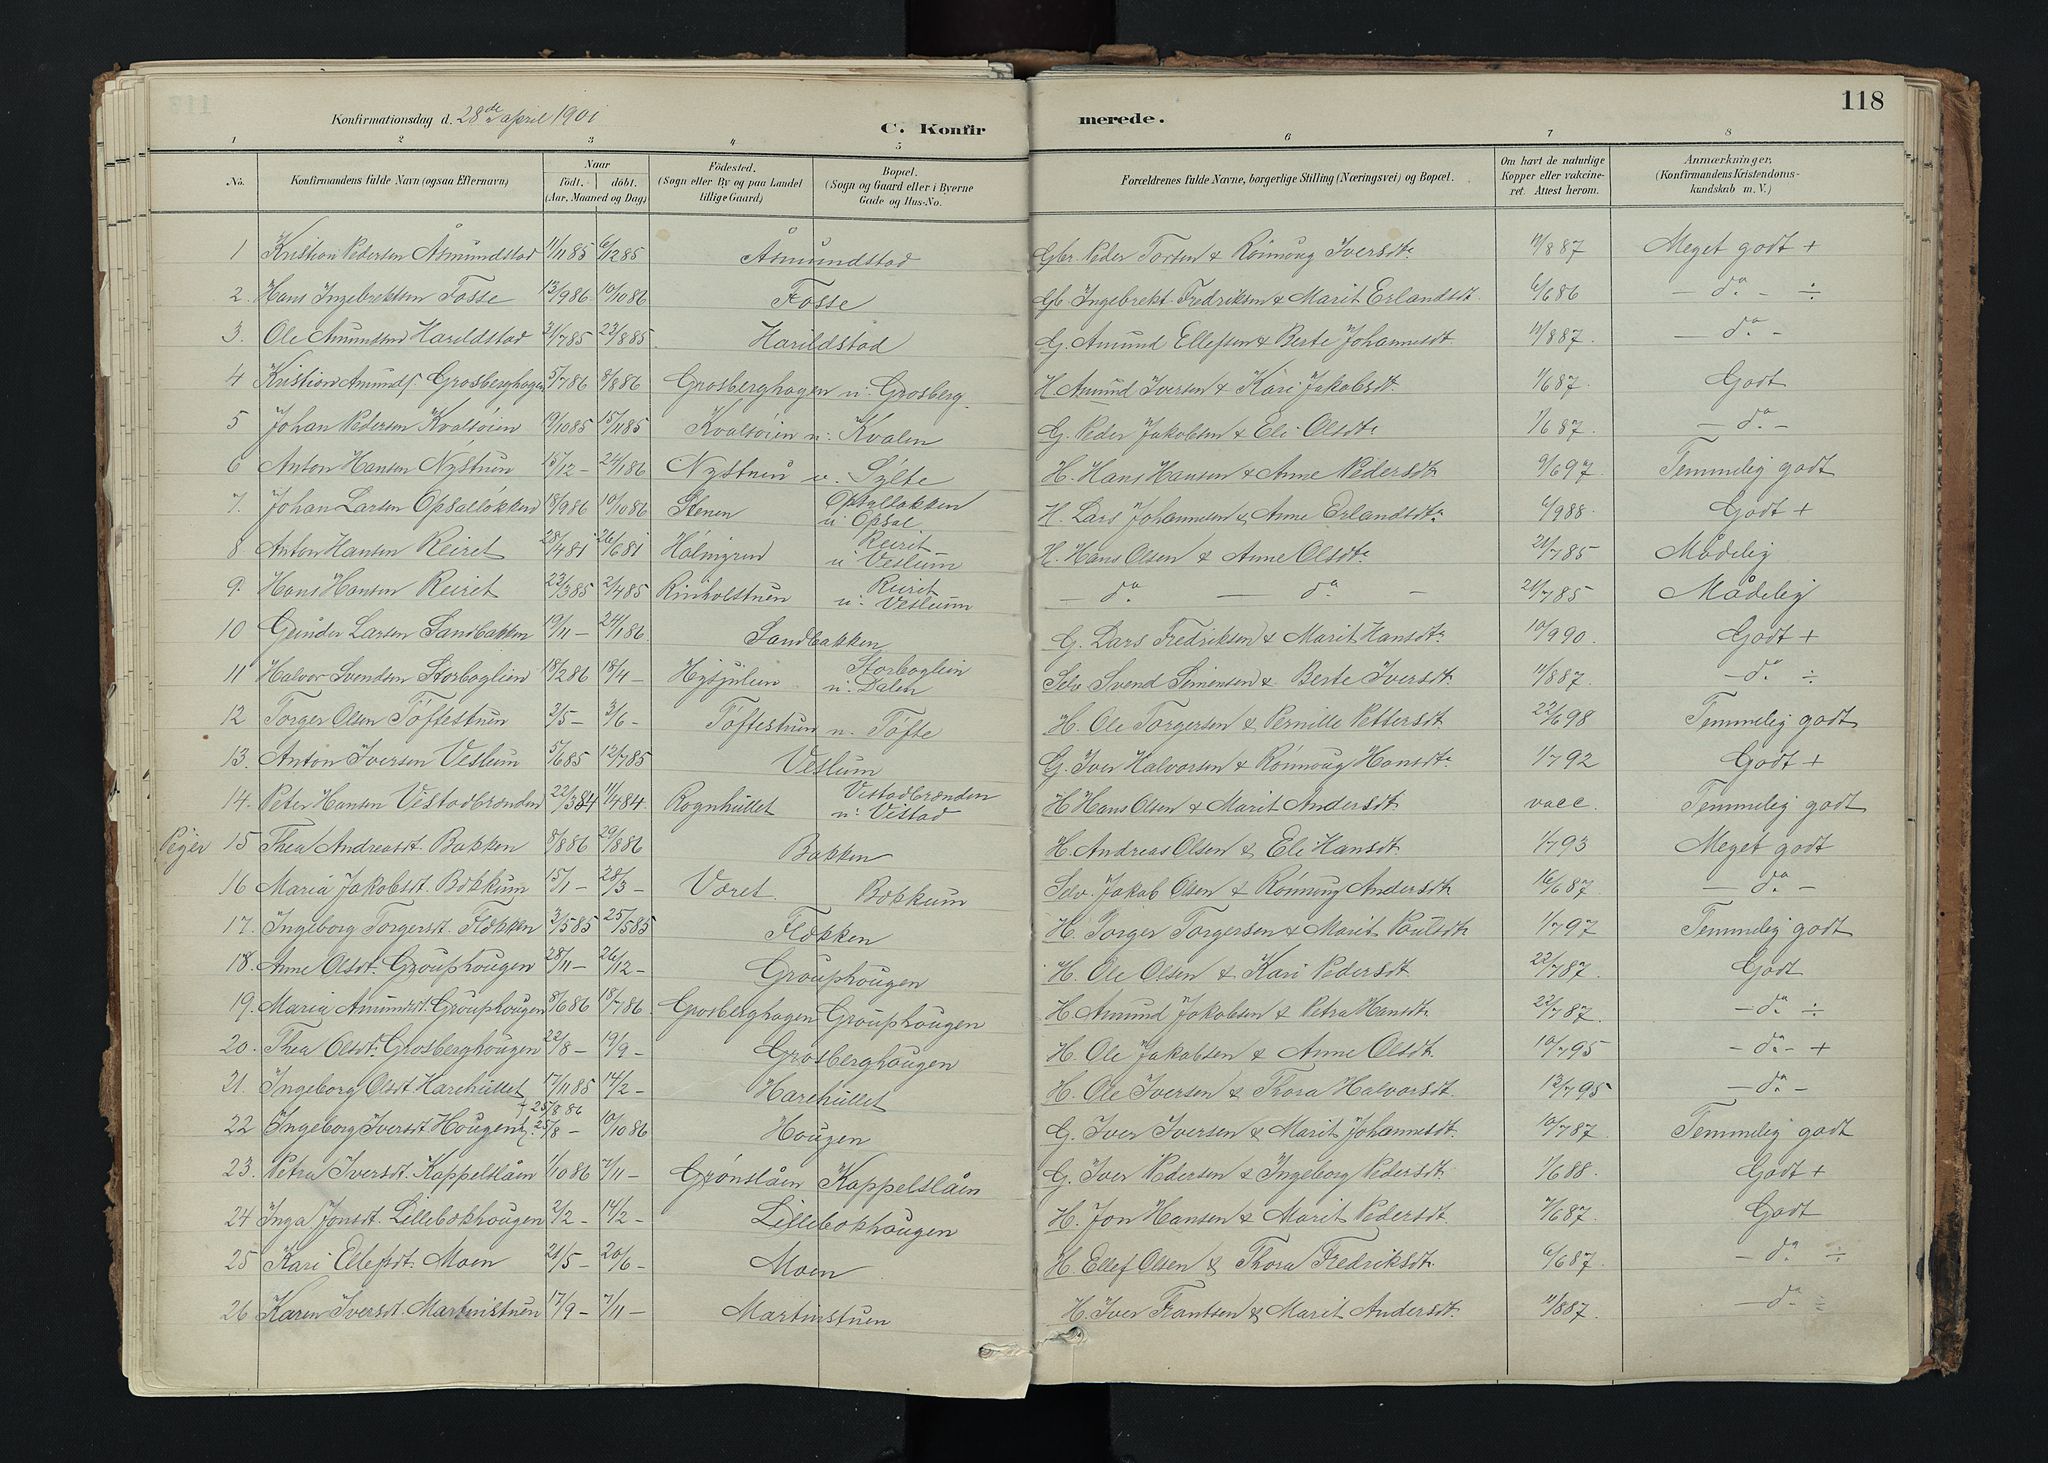 118
Konfirmationsdag d. 28de april 1901
C. Konfirmerede.
1 2 3 4 5 6 7 8
No. Konfirmandens fulde Navn (ogsaa Efternavn) Naar födt. döbt. (Aar, Maaned og Dag) Födested. (Sogn eller By og paa Landet tillige Gaard) Bopæl. (Sogn og Gaard eller i Byerne Gade og Hus-No. Forældrenes fulde Navne, borgerlige Stilling (Næringsvei) og Bopæl. Om havt de naturlige Kopper eller vakcineret. Attest herom. Anmærkninger, (Konfirmandens Kristendomskundskab m. V.)
1 Kristian Pedersen Åsmundstad 11/1185 6/1285 Åsmundstad Gbr. Peder Torsen & Rönnoug Iversdt. 11/887 Meget godt +
2 Hans Ingebrektsen Fosse 13/986 10/1086 Fosse Gb. Ingebrekt Fredriksen & Marit Erlandsdt. 6/686 — do - ÷
3. Ole Amundsen Harildstad 31/785 23/885 Harildstad G. Amund Ellefsen & Berte Johannesdt 11/887. — do -
4 Kristian Amunds. Grosberghagen 5/786 8/886 Grosberghagen u. Grosberg. H Amund Iversen & Kari Jakobsdt. 1/687. Godt
5 Johan Pedersen Kvalsöien 19/1085 15/1185 Kvalsöien u. Kvalen G. Peder Jakobsen & Eli Olsdt. 1/687. — do -
6 Anton Hansen Nystuen 15/12 - 24/186 Nystuen u. Sylte H. Hans Hansen & Anne Pedersdt. 9/697. Temmelig godt
7. Johan Larsen Opsalløkken 18/986 10/1086 Stenen Opsalløkken u Opsal H. Lars Johannesen & Anne Erlandsdt. 6/988. Godt +
8 Anton Hansen Reiret 28/481 26/681 Holmgrind Reiret u Veslum H. Hans Olsen & Anne Olsdt. 21/785 Mådelig
9. Hans Hansen Reiret 23/385 2/485 Rinholstuen Reiret u. Veslum — do — do - 21/785 Mådelig
10 Gunder Larsen Sandbakken 19/11 - 24/186. Sandbakken G. Lars Fredriksen & Marit Hansdt. 10/990. Godt +
11 Halvor Svendsen Storboglien 18/286 18/4 - Hysjulien Storboglien u. Dalen Selv. Svend Simensen & Berte Iversdt. 11/887. — do. ÷
12 Torger Olsen Töftestuen 2/5 - 3/6 - Töftestuen u. Töfte H. Ole Torgersen & Pernille Pettersdt 22/698 Temmelig godt
13. Anton Iversen Veslum 5/685 12/785 Veslum G. Iver Halvorsen & Rönnoug Hansdt. 1/792 Godt +
14. Peter Hansen Vistadbrænden 22/384 11/484. Rognhullet Vistadbrænden u. Vistad H Hans Olsen & Marit Andersdt. vacc. Temmelig godt
Piger 15 Thea Andreasdt. Bakken 8/886 29/886 Bakken H. Andreas Olsen & Eli Hansdt. 1/793 Meget godt
16 Maria Jakobsdt. Bækkum 15/1 - 28/3 - Voret. Bækkum Selv. Jakob Olsen & Rönnoug Andersdt. 16/687. — do -
17. Ingeborg Torgersdt. Flækken 3/585 25/585 Flækken H. Torger Torgersen & Marit Poulsdt. 1/797 Temmelig godt
18. Anne Olsdt. Grouphougen 28/11 - 26/12 - Grouphougen H. Ole Olsen & Kari Pedersdt. 22/787. Godt
19. Maria Amundsdt. Grouphougen 8/686 18/786. Grosberghagen Grouphougen H. Amund Jakobsen & Petra Hansdt. 22/787. — do ÷
20. Thea Olsdt. Grosberghougen 22/8 - 19/9 - Grosberghougen H. Ole Jakobsen & Anne Olsdt. 10/795 — do - +
21. Ingeborg Olsdt. Harehullet 17/1185 14/2 - Harehullet H. Ole Iversen & Thora Halvorsdt. 12/795 — do -
+ 25/8 86
22 Ingeborg Iversdt Hougen 25/8 - 10/1086 Hougen G. Iver Iversen & Marit Johannesdt. 10/787. Temmelig godt
23. Petra Iversdt. Kappelslåen 1/1086 7/11 - Grönslåen Kappelslåen G. Iver Pedersen & Ingeborg Pedersdt. 1/688. Godt +
24 Inga Jonsdt. Lillebækhougen 2/2 - 14/2 - Lillebækhougen H. Jon Hansen & Marit Pedersdt. 7/687. Godt
25 Kari Ellefsdt. Moen 21/5 - 20/6 - Moen H. Ellef Olsen & Thora Fredriksdt. 6/687. — do ÷
26 Karen Iversdt. Martinstuen 17/9 - 7/11 - Martinstuen H. Iver Frantsen & Marit Andersdt. 11/887. — do. ÷